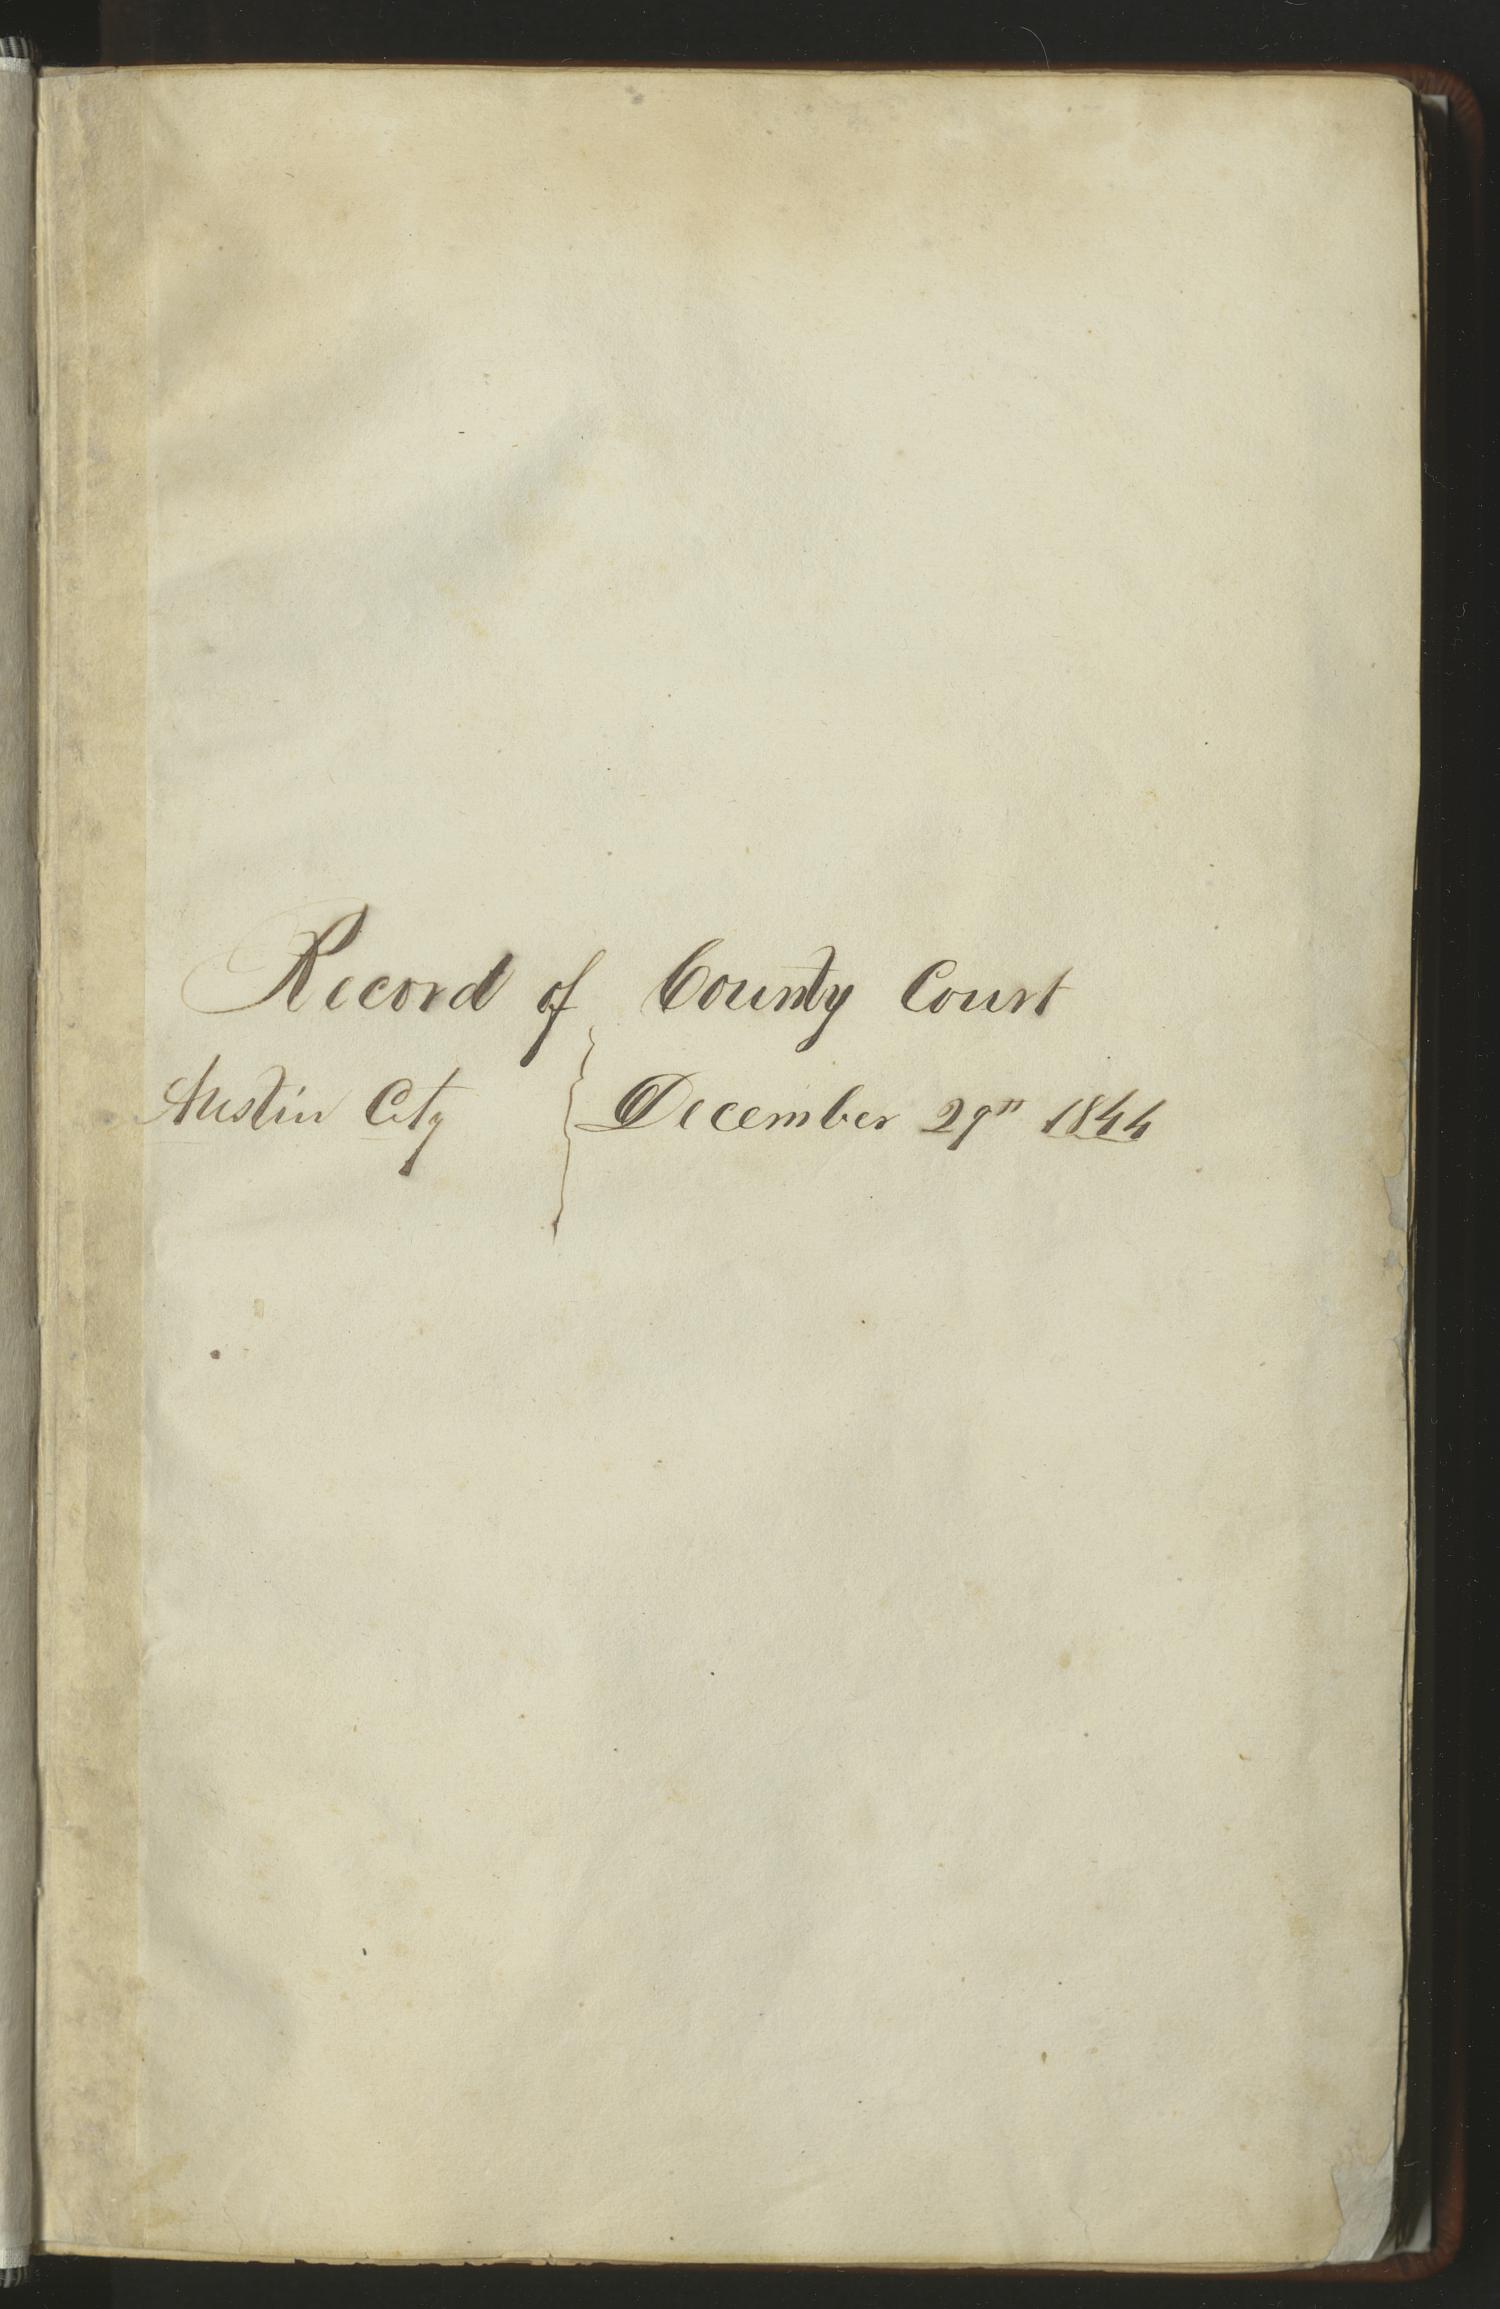 Record of County Court
Austin City } December 29" 1844